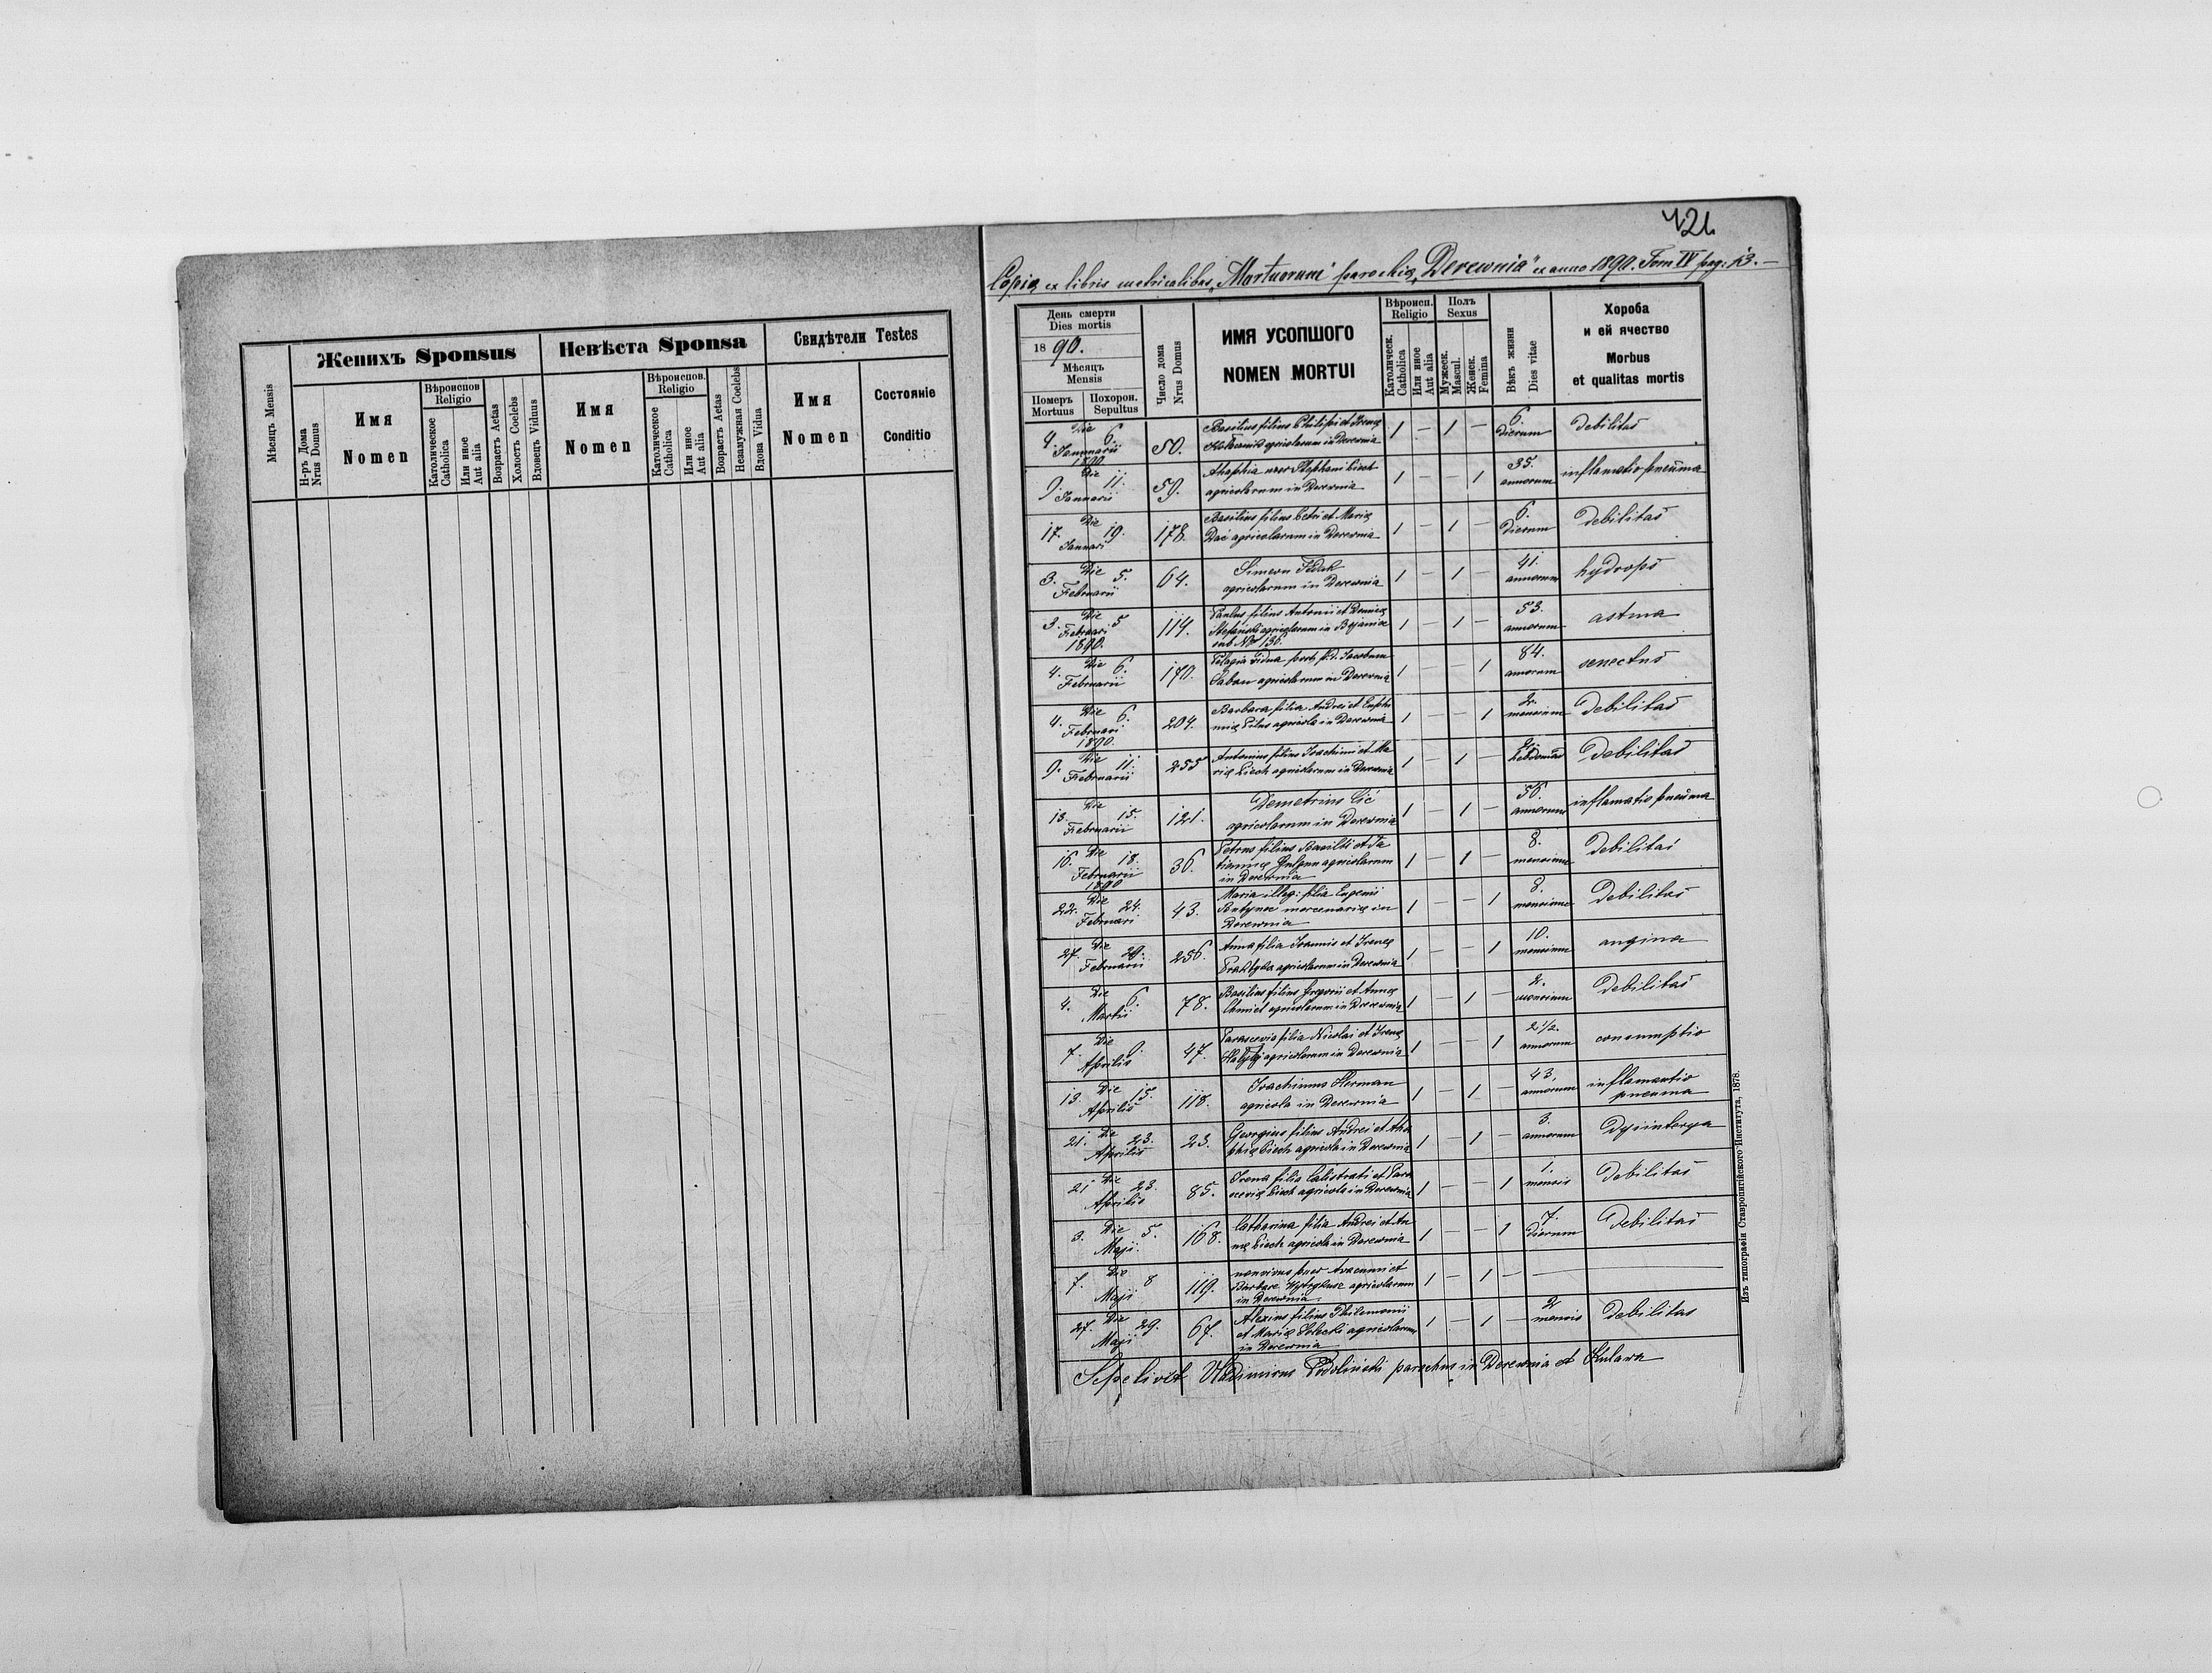 Мѣсяцъ Mensis
Женихъ Sponsus
Невѣста Sponsa
Свидѣтели Testes
Н-ръ Дома
Nrus Domus
Имя
Nomen
Вѣроиспов
Religio
Католическое
Catholica
Или иное
Aut alia
Возрастъ Aetas
Холостъ Coelebs
Вдовецъ Viduus
Имя
Nomen
Вѣроиспов.
Religio
Католическое
Catholica
Или иное
Aut alia
Возрастъ Aetas
Незамужная Coelebs
Вдова Vidua
Имя
Nomen
Состояніе
Conditio
421
Copia ex libris metricalibus "Mortuorum" parochię "Derewnia" ex anno 1890. Tom IV pag: 13.
День смерти
Dies mortis
1890.
Мѣсяцъ
Mensis
Померъ
Mortuus
Похорон.
Sepultus
Число дома
Nrus Domus
ИМЯ УСОПШОГО
NOMEN MORTUI
Вѣроисп.
Religio
Католическ.
Catholica
Или иное
Aut alia
Полъ
Sexus
Мужеск.
Mascul.
Женск.
Femina
Вѣкъ жизни
Dies vitae
Хороба
и ей ячество
Morbus
et qualitas mortis
4. Die 6. Januarii 1890 50. Basilius filius Philippi et Irenę agricolarum in Derewnia 1 — 1 — 6. dierum debilitas
9. Die 11. Januarii 59. Ahaphia uxor Stephani agricolarum in Derewnia 1 — — 1 35. annorum inflamatio pneuma
17. Die 19. Januari 178. Basilius filius Petri et Marię Dać agricolarum in Derewnia 1 — 1 — 6. dierum debilitas
3. Die 5. Februarii 64. Simeon Fedak
agricolarum in Derewnia 1 — 1 — 41. annorum hydrops
3. Die 5 Februari 1890. 114. Paulus filius Antonii et
agricolarum in
sub Nro 136. 1 — 1 — 53. annorum astma
4. Die 6. Februarii 170. Pelagia vidua post p.d. Jacobum
Saban agricolarum in Derewnia 1 — — 1 84. annorum senectus
4. Die 6. Februari 1890. 204. Barbara filia Andrei et Euphe
mię agricola in Derewnia 1 — — 1 2. mensium debilitas
9. Die 11. Februarii 255 Antonius filius Joachimi et Ma
rię agricolarum in Derewnia 1 — 1 — debilitas
13. Die 15. Februarii 121. Demetrius
agricolarum in Derewnia 1 — 1 — 56. annorum inflamatio pneuma
16. Die 18. Februarii 1890 36. Petrus filius Basilii et Ta
tiannę agricolarum
in Derewnia 1 — 1 — 8. mensium debilitas
22. Die 24. Februari 43. Maria illeg: filia Eugenii
mercenarię in
Derewnia 1 — — 1 8. mensium debilitas
27. Die 29. Februarii 256. Anna filia Joannis et Irenę
agricolarum in Derewnia 1 — — 1 10. mensium angina
4. Die 6. Martii 78. Basilius filius Gregorii et Annę
agricolarum in Derewnia 1 — 1 — 2. mensium debilitas
7. Die 9. Aprilis 47. Parascevia filia Nicolai et Irenę
agricolarum in Derewnia 1 — — 1 2 1/2. annorum consumptio
13. Die 15. Aprilis 118. Joachimus Herman
agricola in Derewnia 1 — 1 — 43. annorum inflamatio
pneuma
21. Die 23. Aprilis 23. Georgius filius Andrei et Aha
phię agricola in Derewnia 1 — 1 — 3. annorum
21 Die 23. Aprilis 85. Irena filia Calistrati et Para
scevię agricola in Derewnia 1 — — 1 1. mensis debilitas
3. Die 5. Maji 168. Catharina filia Andrei et An
nę agricola in Derewnia 1 — — 1 7. dierum debilitas
7. Die 8 Maji 119. non vivus puer et
Barbarę agricolarum
in Derewnia 1 — 1 — —
27. Die 29. Maji 67. Alexius filius Philemonii
et Marię agricolarum
in Derewnia 1 — 1 — 2 mensis debilitas
Sepelivit Wladimirus Podoliński parochus in Derewnia et Kulawa
Изъ типографіи Ставропигійского Института, 1878.